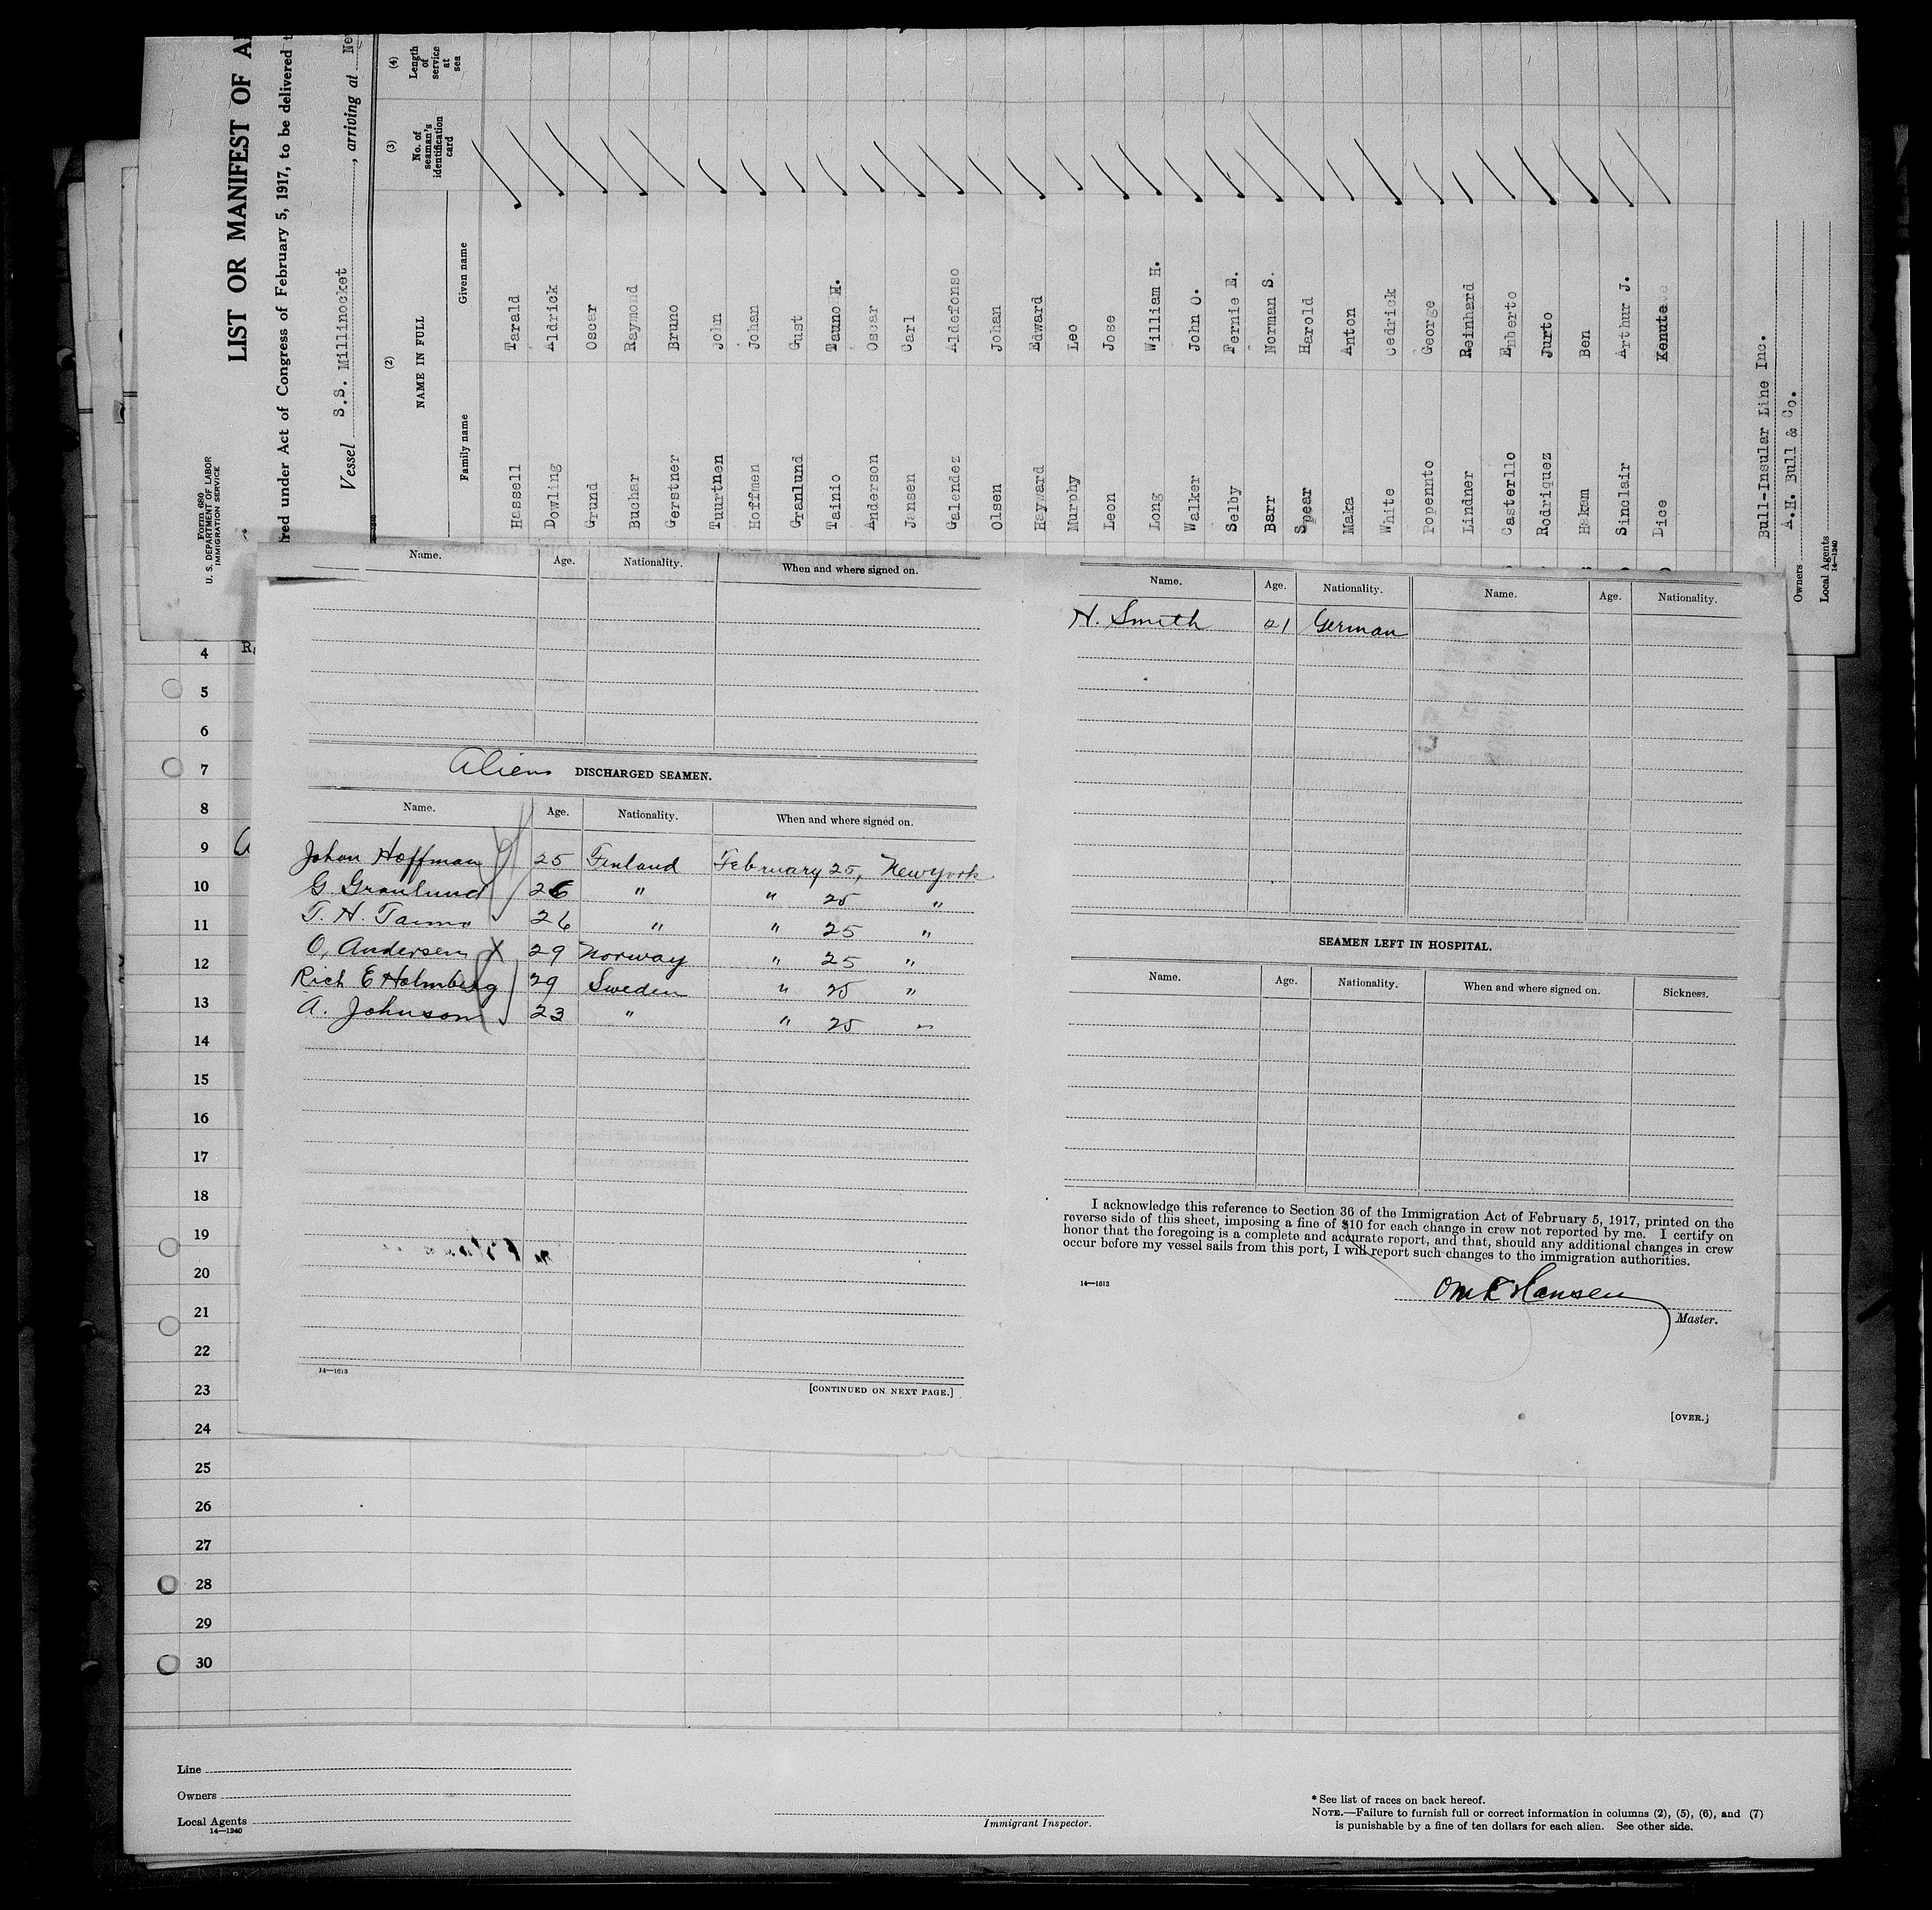 Form 680
U. S. DEPARTMENT OF LABOR
IMMIGRATION SERVICE
LIST OR MANIFEST OF
under Act of Congress of February 5, 1917, to be delivered
Vessel S.S. Millinocket, arriving at
(2) (3) (4)
NAME IN FULL
No. of seaman's identification card
Length of service at sea
Family name Given name
Hassell Tarald
Dowling Aldrick
Grund Oscar
Buchar Raymond
Gerstner Bruno
Tuurtnen John
Hoffmen Johan
Granlund Gust
Tainio Tauno H.
Anderson Oscar
Jansen Carl
Galendez Aldefonso
Olsen Johan
Hayward Edward
Murphy Leo
Leon Jose
Long William H.
Walker John O.
Selby Fernie E.
Barr Norman S.
Spear Harold
Maka Anton
White Cedrick
Popennto George
Lindner Reinhard
Casterllo Enberto
Rodriquez Jurto
Hakam Ben
Sinclair Arthur J.
Dice Kenute
Bull-Insular Line Inc.
Owners A.H. Bull & Co.
Local Agents
14—1240
Name. Age. Nationality. When and where signed on.
Aliens DISCHARGED SEAMEN.
Name. Age. Nationality. When and where signed on.
Johan Hoffman 25 Finland February 25, New York
G. Granlund 26 " " 25 "
T. H. Taino 26 " " 25 "
O. Andersen 29 Norway " 25 "
Rich E Holmberg 29 Sweden " 25 "
A. Johnson 23 " " 25 "
14—1613
[CONTINUED ON NEXT PAGE.]
Name. Age. Nationality. Name. Age. Nationality.
H. Smith 21 German
SEAMEN LEFT IN HOSPITAL.
Name. Age. Nationality. When and where signed on. Sickness.
I acknowledge this reference to Section 36 of the Immigration Act of February 5, 1917, printed on the
reverse side of this sheet, imposing a fine of $10 for each change in crew not reported by me. I certify on
honor that the foregoing is a complete and accurate report, and that, should any additional changes in crew
occur before my vessel sails from this port, I will report such changes to the immigration authorities.
14—1613
Hansen
Master.
[OVER.]
4
5
6
7
8
9
10
11
12
13
14
15
16
17
18
19
20
21
22
23
24
25
26
27
28
29
30
Line
Owners
Local Agents
14—1240
Immigrant Inspector.
* See list of races on back hereof.
NOTE.—Failure to furnish full or correct information in columns (2), (5), (6), and (7)
is punishable by a fine of ten dollars for each alien. See other side.